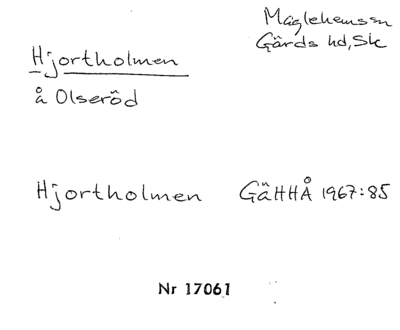 Maglehems sn
Gärds hd, Sk
Hjortholmen
å Olseröd
Hjortholmen GäHHÅ 1967:85
Nr 17061